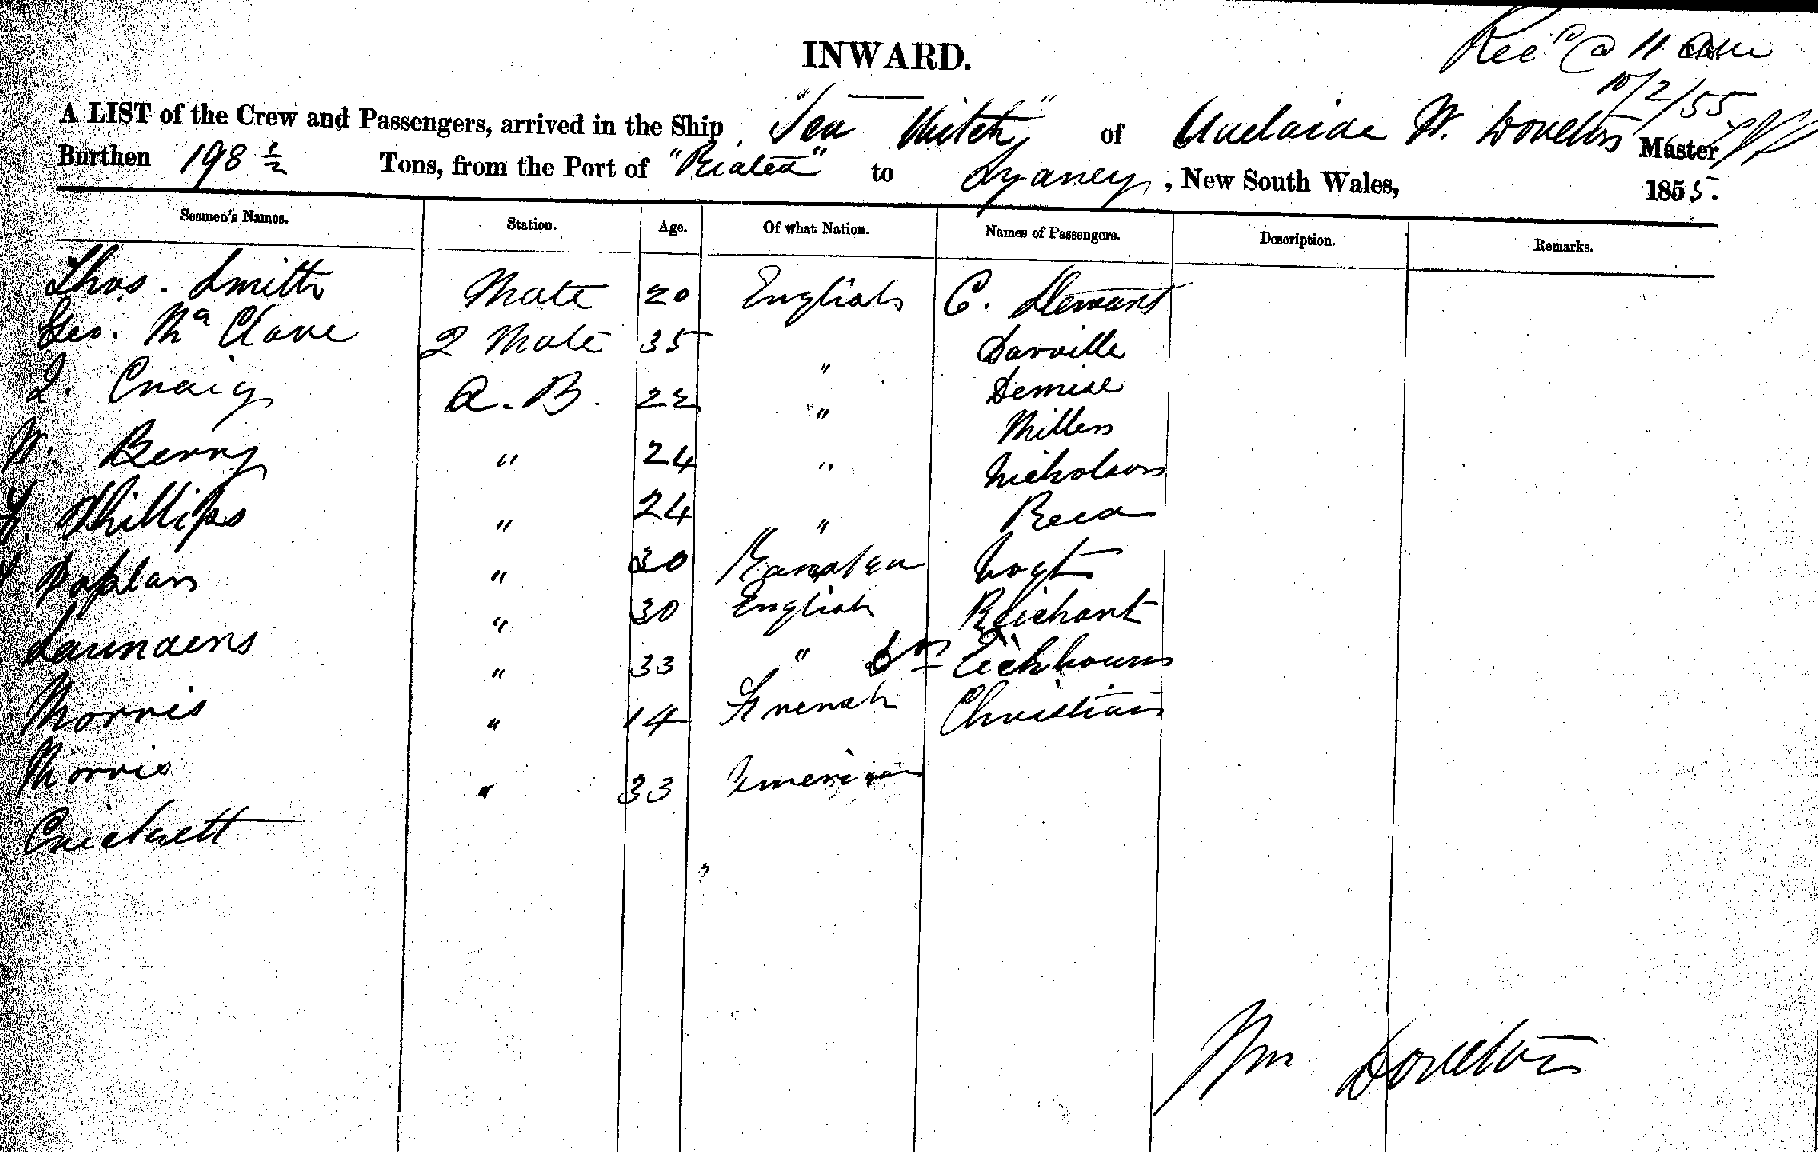 INWARD.
Rec^d @ 11 am
10/2/55
A LIST of the Crew and Passengers, arrived in the Ship "Sea Witch" of Adelaide W. Doveton Master
Burthen 198 1/2 Tons, from the Port of "Riatea" to Sydney, New South Wales, 1855.
Seamen's Names. Station. Age. Of what Nation. Names of Passengers. Description. Remarks.
Thos. Smith Mate 20 English C. Stewart
Geo. Mc Clave 2 Mate 35 " Darville
Craig A.B. 22 " Demise
W. Berry " 24 " Millers
Phillips " 24 " Nicholson
30 Reed
Saunders " 30 English Vogt
Morris " 33 " Reichart
Morris " 14 French Christian
Crickett " 33 American
Wm Doveton